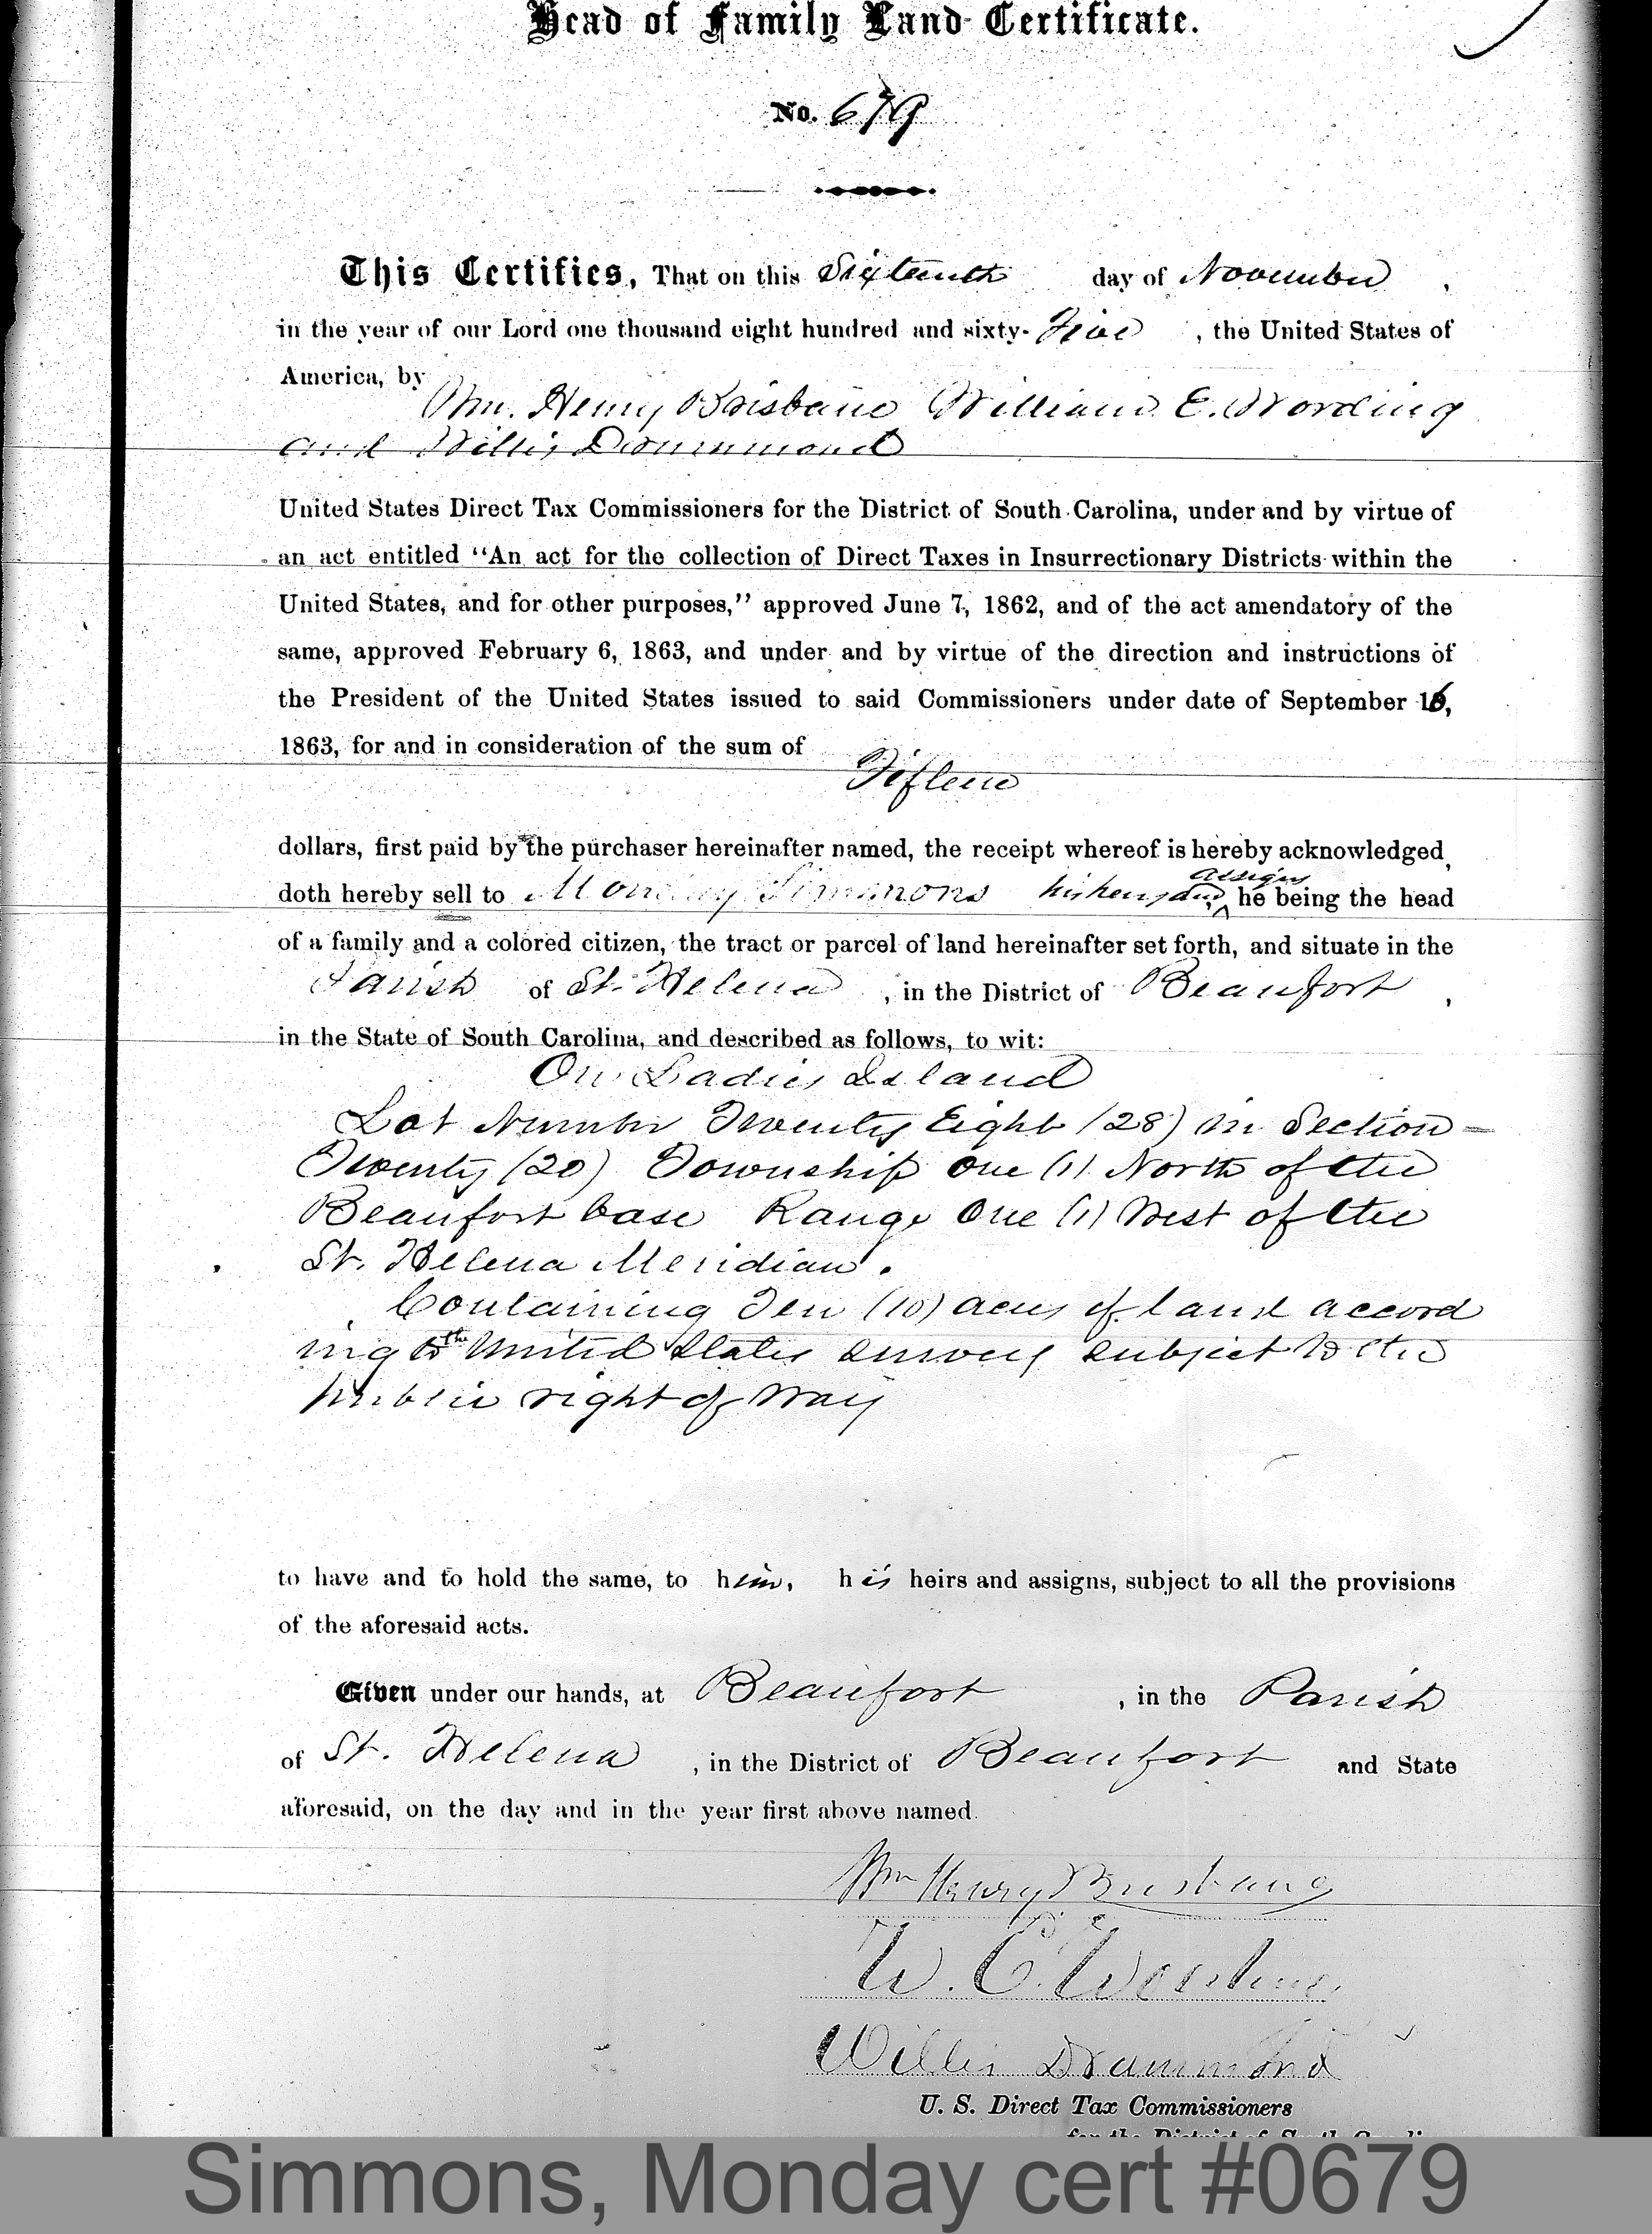 Head of Family Land Certificate.
No. 679
This Certifies, That on this Sixteenth day of November,
in the year of our Lord one thousand eight hundred and sixty-Five, the United States of
America, by
Wm. Henry Brisbane William E. Wording
and Willis Drummond
United States Direct Tax Commissioners for the District of South Carolina, under and by virtue of
an act entitled "An act for the collection of Direct Taxes in Insurrectionary Districts within the
United States, and for other purposes," approved June 7, 1862, and of the act amendatory of the
same, approved February 6, 1863, and under and by virtue of the direction and instructions of
the President of the United States issued to said Commissioners under date of September 16,
1863, for and in consideration of the sum of
Fifteen
dollars, first paid by the purchaser hereinafter named, the receipt whereof is hereby acknowledged,
doth hereby sell to Monday Simmons his heirs and assigns he being the head
of a family and a colored citizen, the tract or parcel of land hereinafter set forth, and situate in the
Parish of St. Helena, in the District of Beaufort,
in the State of South Carolina, and described as follows, to wit:
On Ladies Island
Lot Number Twenty Eight (28) in Section
Twenty (20) Township One (1) North of the
Beaufort base Range One (1) West of the
St. Helena Meridian.
Containing Ten (10) acres of land accord
ing to the United States survey subject to the
public right of way
to have and to hold the same, to him, his heirs and assigns, subject to all the provisions
of the aforesaid acts.
Given under our hands, at Beaufort, in the Parish
of St. Helena, in the District of Beaufort and State
aforesaid, on the day and in the year first above named.
Wm Henry Brisbane
W. E. Wording
Willis Drummond
U. S. Direct Tax Commissioners
for the District of South Carolina
Simmons, Monday cert #0679